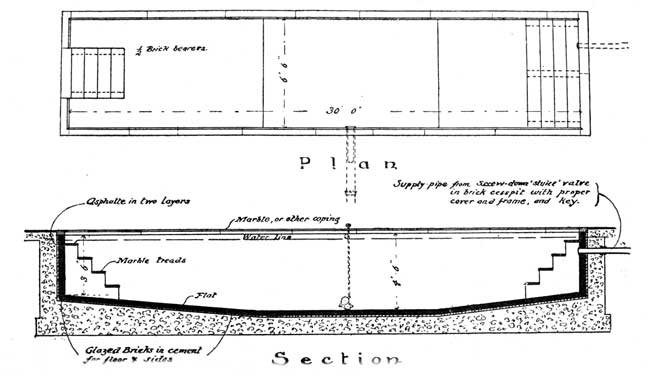 ½ Brick bearers.
6' 6"
30' 0"
Plan
Supply pipe from screw-down 'sluice' valve
in brick cesspit with proper
cover and frame, and key.
Asphalte in two layers
Marble, or other coping
Water line
3' 6"
Marble treads
4' 6"
Flat
Glazed Bricks in cement
for floor & sides
Section